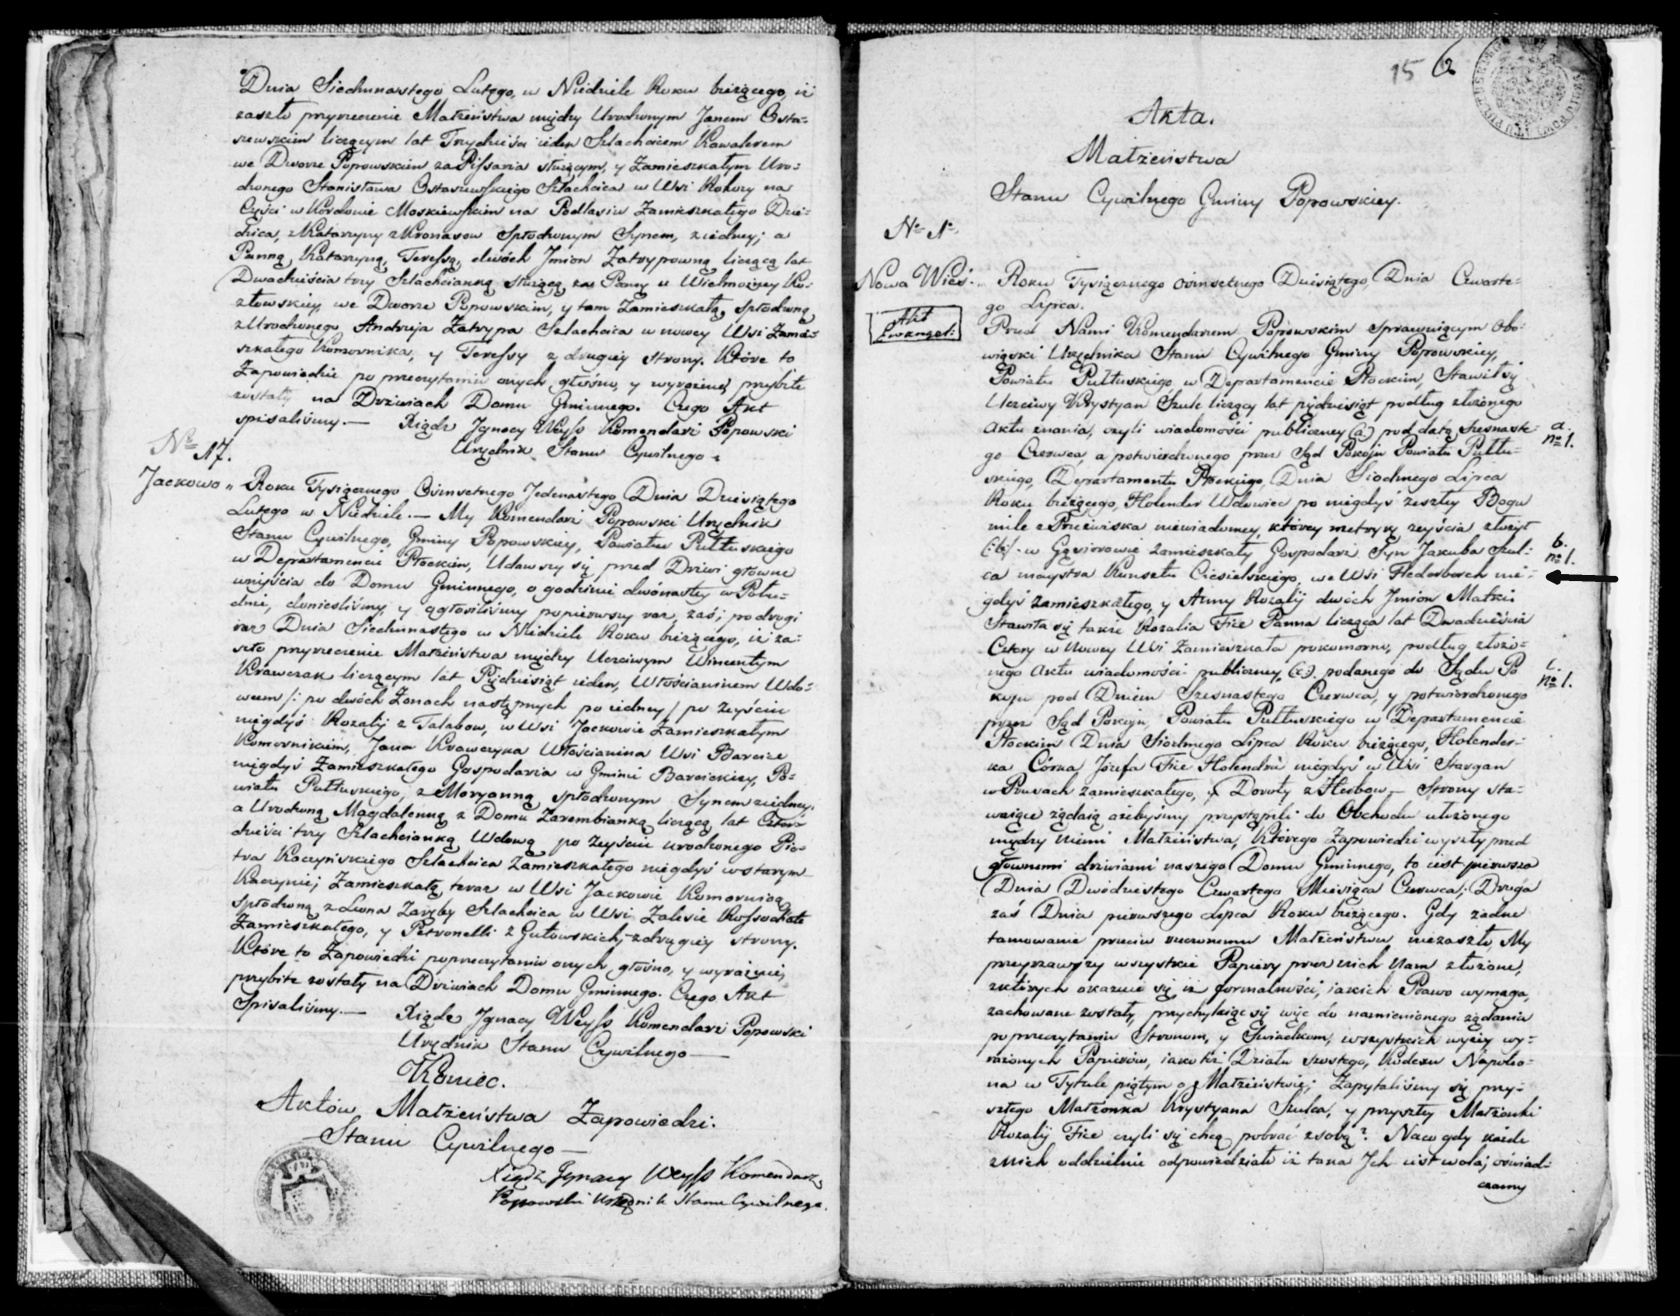 Dnia Siedmnastego Lutego, w Niedziele Roku bieżącego, iż
zaszło przyrzeczenie Małżeństwa między Urodzonym Janem Osta-
szewskim liczącym lat Trzydzieści ieden Szlachcicem Kawalerem
we Dworze Popowskim za Pissarza służącym, y Zamieszkałym Uro-
dzonego Stanisława Ostaszewskiego Szlachcica w Wsi Rokury na
Części w Kordonie Moskiewskim na Podlasiu Zamieszkałego Dzie-
dzica, z Katarzyny z Kronasow Spłodzonym Synem, z iedney; a
Panną, Katarzyną, Teressą, dwóch Jmion Zatrypowną liczącą lat
Dwadzieścia trzy Szlachcianką służącą za Pannę u Wielmożney Ko-
złowskiey we Dworze Popowskim, y tam Zamieszkałą, Spłodzoną
z Urodzonego, Andrzeja Zatrypa Szlachcica w nowey Wsi Zamie-
szkałego Komornika, y Teressy z drugiey strony. Które to
Zapowiedzie po przeczytaniu onych głośno, y wyraźnie przybite
zostały na Drzwiach Domu Gminnego. Czego Akt
spisaliśmy.— Xiądz Jgnacy Weyss Komendarz Popowski
Urzędnik Stanu Cywilnego.
No 17.
Jackowo „ Roku Tysiącznego Ośmsetnego Jedenastego Dnia Dziesiątego
Lutego w Niedziele.— My Komendarz Popowski Urzędnik
Stanu Cywilnego, Gminy Popowskiey, Powiatu Pułtuskiego
w Departamencie Płockim, Udawszy się przed Drzwi główne
weyścia do Domu Gminnego, o godzinie dwónastey w Połu-
dnie, donieśliśmy, y ogłosiliśmy popierwszy raz, zaś; po drugi
raz Dnia Siedmnastego w Niedziele Roku bieżącego, iż za-
szło przyrzeczenie Małżeństwa między Uczciwym Wincentym
Krawczak liczącym lat Pięćdziesiąt ieden, Włościaninem Wdo-
wcem /: po dwóch Zonach następnych po iedney / po Zeyściu
niegdyś Rozalij z Talabow, w Wsi Jackowie Zamieszkałym
Komornikim, Jana Krawczyka Włościanina Wsi Barcice
niegdyś Zamieszkałego Gospodarza w Gminie Barcickiey, Po-
wiatu Pułtuskiego, z Maryanną spłodzonym Synem z iedney.
a Urodzoną Magdalenną z Domu Zarembianką liczącą lat Czter-
dzieści trzy Szlachcianką Wdową po Zeyściu urodzonego Pio-
tra Kaczyńskiego Szlachcica Zamieszkałego niegdyś w starym
Kaczynie; Zamieszkałą teraz w Wsi Jackowie Komornicą
spłodzoną z Leona Zaręby Szlachcica w Wsi Zalesie Rossochate
Zamieszkałego, y Petronelli z Gutowskich, z drugiey strony.
Które to Zapowiedzi po przeczytaniu onych głośno, y wyraźnie,
przybite zostały na Drzwiach Domu Gminnego. Czego Akt
Spisaliśmy.— Xiądz Jgnacy Weyss Komendarz Popowski
Urzędnik Stanu Cywilnego —
Koniec.
Aktów Małżeństwa Zapowiedzi.
Stanu Cywilnego —
Xiądz Jgnacy Weyss Komendarz
Popowski Urzędnik Stanu Cywilnego.
15 6
Akta.
Małżeństwa
Stanu Cywilnego Gminy Popowskiey.
No 1o.
Nowa Wieś. Roku Tysiącznego Ośmsetnego Dziesiątego Dnia Czwarte-
go Lipca.
Akt
Ewangel:
Przed Nami Komendarzem Popowskim Sprawuiącym Obo-
wiązki Urzędnika Stanu Cywilnego Gminy Popowskiey,
Powiatu Pułtuskiego, w Departamencie Płockim, Stawił się
Uczciwy Krystyan Szulc liczący lat pięćdziesiąt podług złożonego
Aktu znania, czyli wiadomości publiczney (a) pod datą Szesnaste-
a.
no 1.
go Czerwca, a potwierdzonego przez Sąd Pokoju Powiatu Pułtu-
skiego, Departamentu Płockiego, Dnia Siodmego Lipca
Roku bieżącego, Holender Wdowiec po niegdyś zeszłey Bogu
miłe z Przezwiska niewiadomey, którey metrykę zeyścia złożył
(:b:). w Gąsiorowie zamieszkały Gospodarz Syn Jakuba Szul-
b.
no 1.
ca maystra Kunsztu Ciesielskiego, we Wsi Flederborch nie-
gdyś zamieszkałego, y Anny Rozalij dwóch Jmion Matki
Stawiła się także Rozalia Fice Panna licząca lat Dwadzieścia
Cztery w Nowey Wsi Zamieszkała przy komorne, podług złożo-
nego Aktu wiadomości publiczney, (c.) podanego do Sądu Po
c.
no 1.
koju pod Dniem Szesnastego Czerwca, y potwierdzonego
przez Sąd Pokoju, Powiatu Pułtuskiego w Departamencie
Płockim Dnia Siodmego Lipca Roku bieżącego, Holender-
ka Córka Józefa Fice Holendra niegdyś w Wsi Stargan
w Prusach zamieszkałego, y Doroty z Herbow,— Strony sta-
waiące żądaią ażebyśmy przystąpili do Obchodu ułożonego
między niemi Małżeństwa, którego Zapowiedzi wyszły przed
głownemi drzwiami naszego Domu Gminnego, to iest pierwsza
Dnia Dwódziestego Czwartego Miesiąca Czerwca; Druga
zaś Dnia pierwszego Lipca Roku bieżącego. Gdy żadne
tamowanie przeciw rzeczonemu Małżeństwu niezaszło, My
przeyrzawszy wszystkie Papiery przez nich Nam złożone,
z których okazuie się iż formalności, iakich Prawo wymaga,
zachowane zostały, przychylaiąc się więc do namienionego żądania
po przeczytaniu Stronom, y Świadkom, wszystkich wyżey wy-
rażonych Papierów, iako też Działu szostego, Kodexu Napoleo-
na w Tytule piątym o Małżeństwie; Zapytaliśmy się przy-
szłego Małżonka Krystyana Szulca, y przyszłey Małżonki
Rozalij Fice czyli się chcą pobrać z sobą? Na co gdy każde
z nich oddzielnie odpowiedziało iż taka Jch iest wola; oświad-
czamy